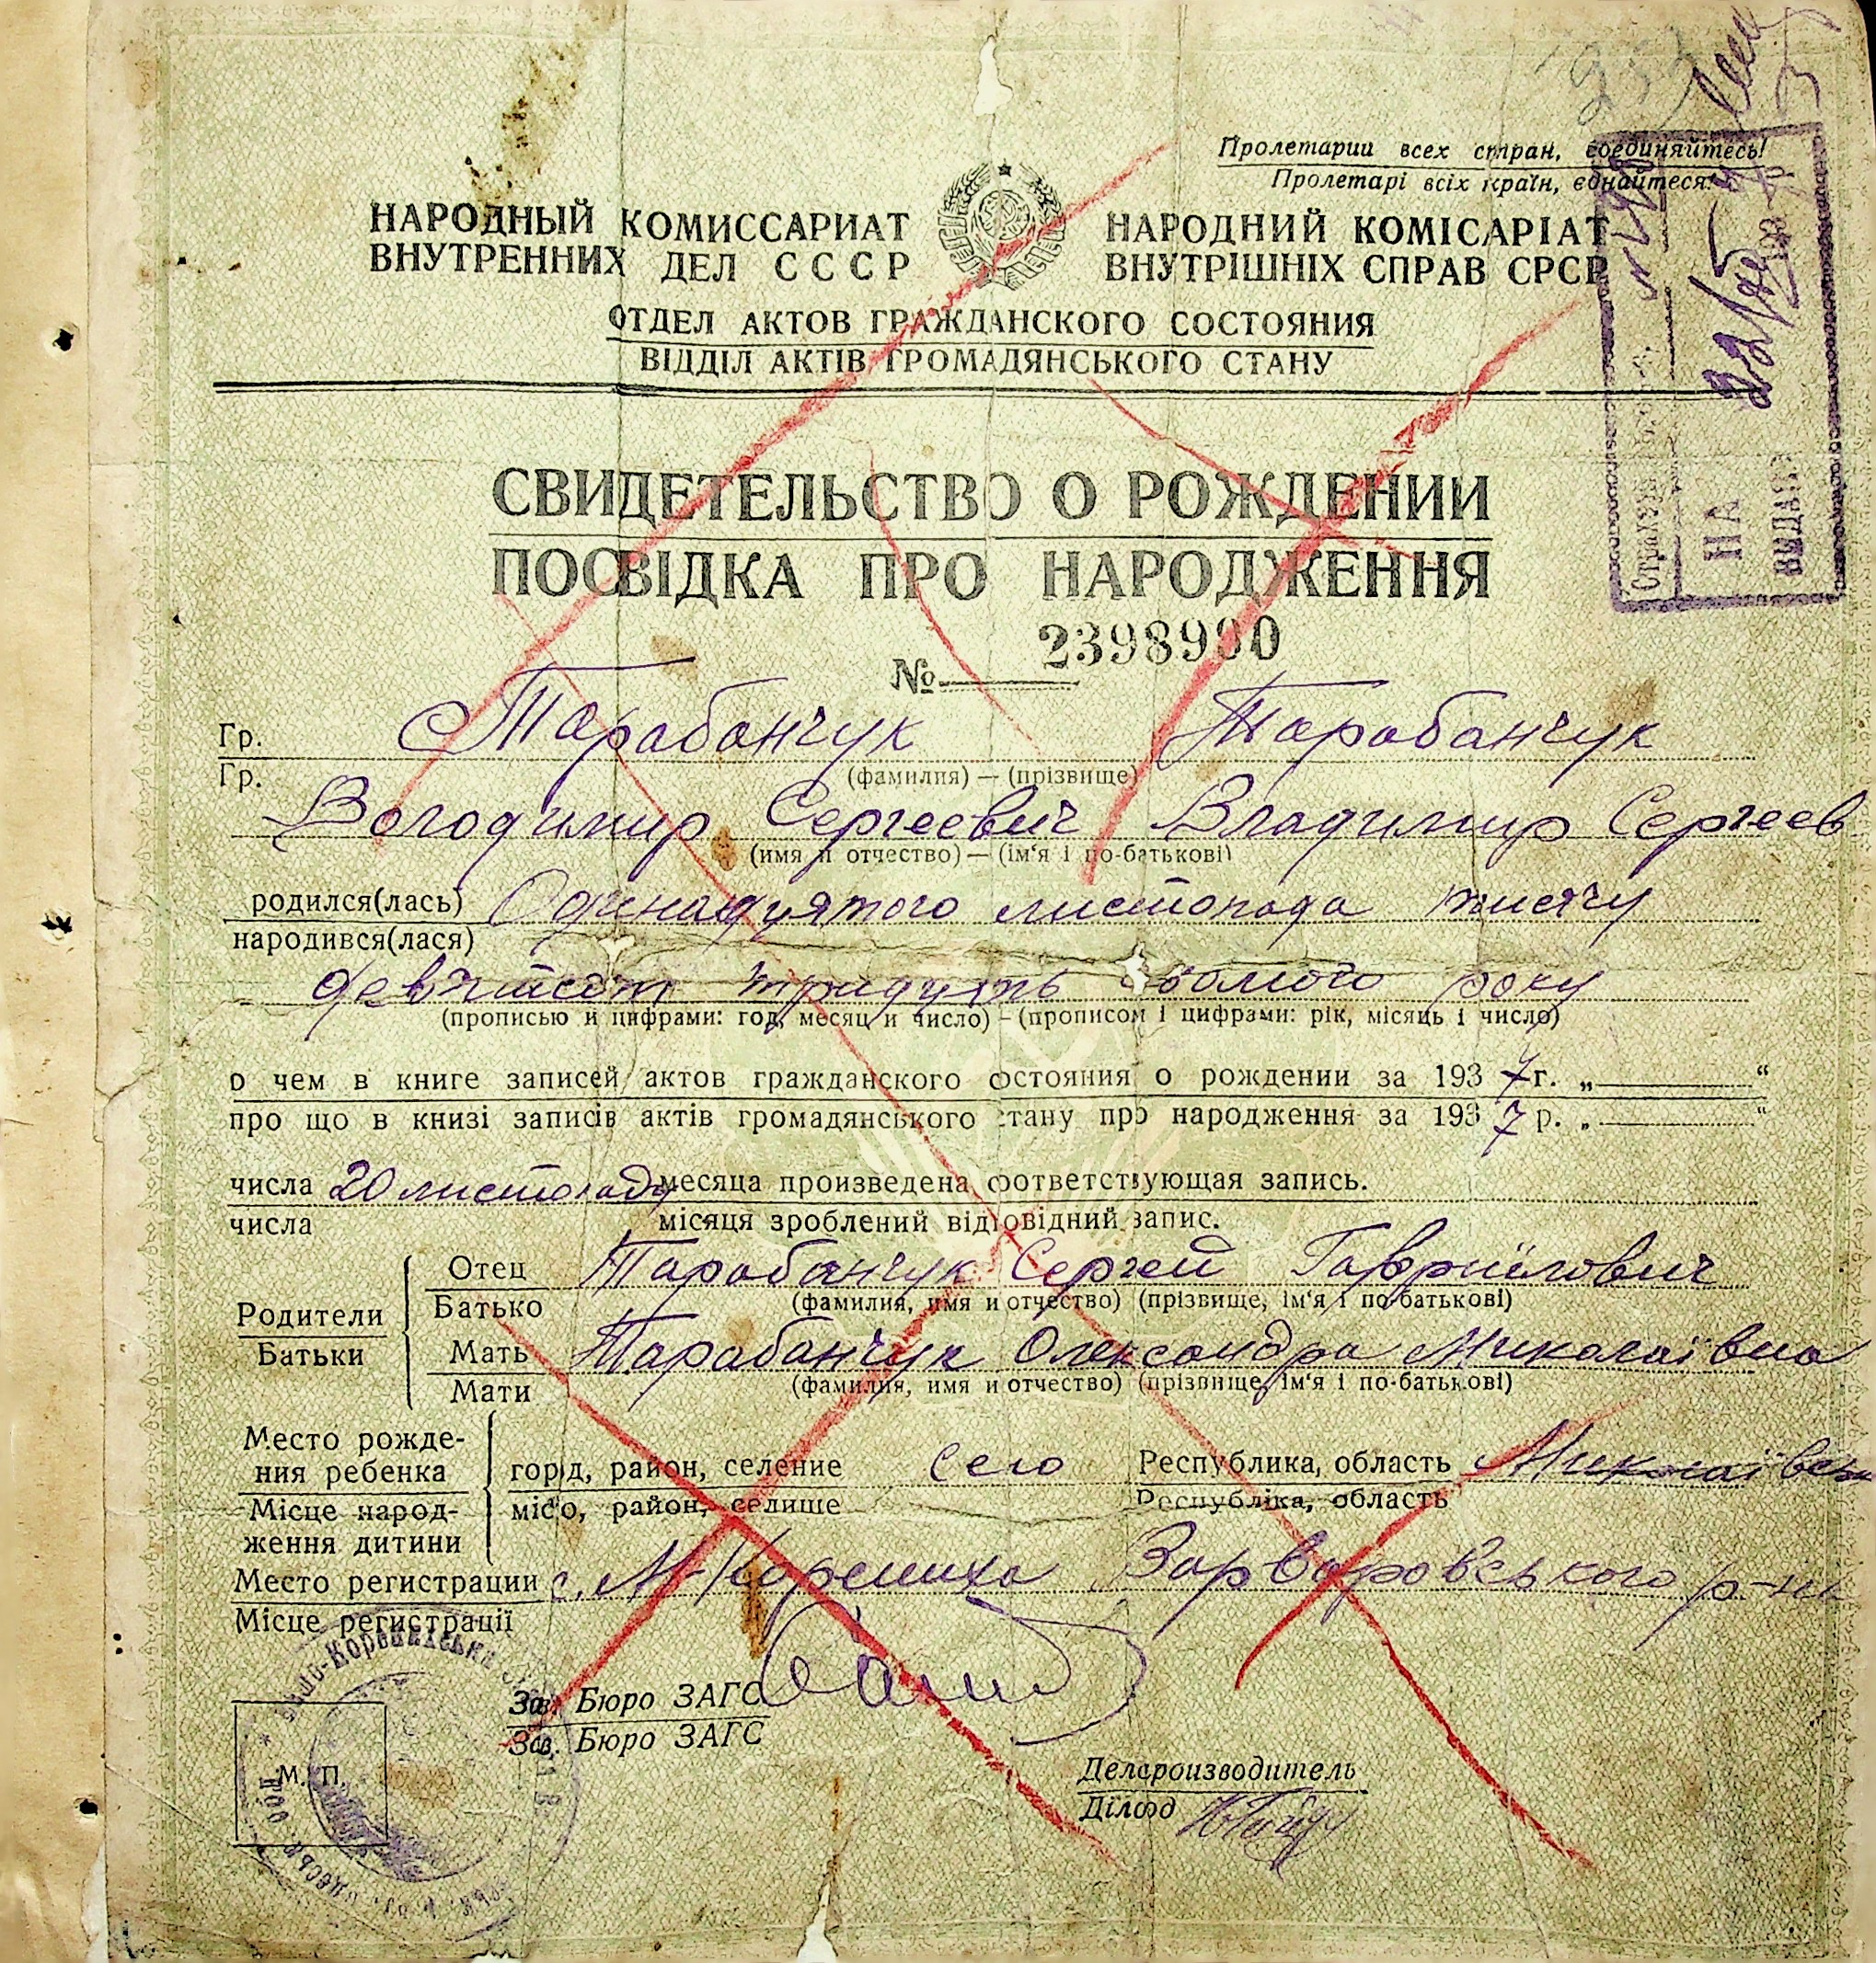 Пролетарии всех стран, соединяйтесь!
Пролетарі всіх країн, єднайтеся!
НАРОДНЫЙ КОМИССАРИАТ ВНУТРЕННИХ ДЕЛ СССР
НАРОДНИЙ КОМІСАРІАТ ВНУТРІШНІХ СПРАВ СРСР
ОТДЕЛ АКТОВ ГРАЖДАНСКОГО СОСТОЯНИЯ
ВІДДІЛ АКТІВ ГРОМАДЯНСЬКОГО СТАНУ
СВИДЕТЕЛЬСТВО О РОЖДЕНИИ
ПОСВІДКА ПРО НАРОДЖЕННЯ
№ 2398990
Гр. Тарабанчук Тарабанчук
Гр. (фамилия) — (прізвище)
Володимир Сергеевич Владимир Сергеев
(имя и отчество) — (ім'я і по-батькові)
родился(лась) Одинадцятого листопада тисячу
народився(лася)
девятсот тридцять сьомого року
(прописью и цифрами: год, месяц и число) — (прописом і цифрами: рік, місяць і число)
о чем в книге записей актов гражданского состояния о рождении за 1937 г. „ “
про що в книзі записів актів громадянського стану про народження за 1937 р. „ “
числа 20 листопаду месяца произведена соответствующая запись.
числа місяця зроблений відповідний запис.
Родители Отец Тарабанчук Сергей Гавриїлович
Батьки Батько (фамилия, имя и отчество) (прізвище, ім'я і по-батькові)
Мать Тарабанчук Олександра Миколаївна
Мати (фамилия, имя и отчество) (прізвище, ім'я і по-батькові)
Место рождения ребенка город, район, селение село Республика, область Миколаївськ
Місце народження дитини місто, район, селище Республіка, область
Место регистрации с. М-Корениха Варваровського р-ну
Місце регистрації
Зав. Бюро ЗАГС
Зав. Бюро ЗАГС
М. П.
Делопроизводитель
Діловод
НА
ВИДАНО